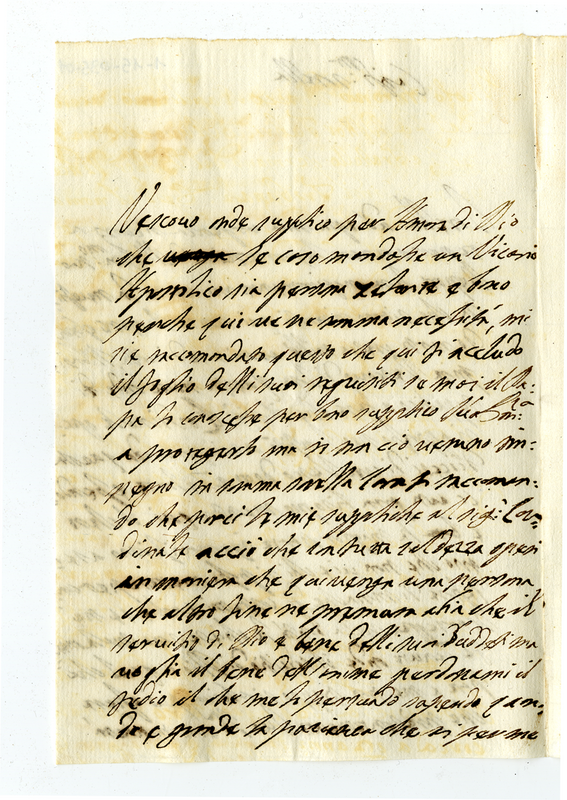 Vescovo onde supplico per l'amor di Dio
che se caso mandasse un Vicario
Apostolico sia persona zelante e bono
perche qui ve ne somma necessità, mi
si è raccomandato questo che qui li accludo
il foglio delli suoi requisiti se mai il Pa-
pa lo conoscesse per bono supplico
a proteggerlo ma in ciò veruno im-
pegno in somma sorella Cara li raccoman-
do che porci le mie suppliche al sig: Car-
dinale acciò che in tutta
in maniera che qui venga una persona
che altro fine ne premura abia che il
servitio di Dio e bene delli suoi
voglia il bene dell'anime perdonami il
tedio il che me lo persuado sapendo quan-
to e grande la pacienza che